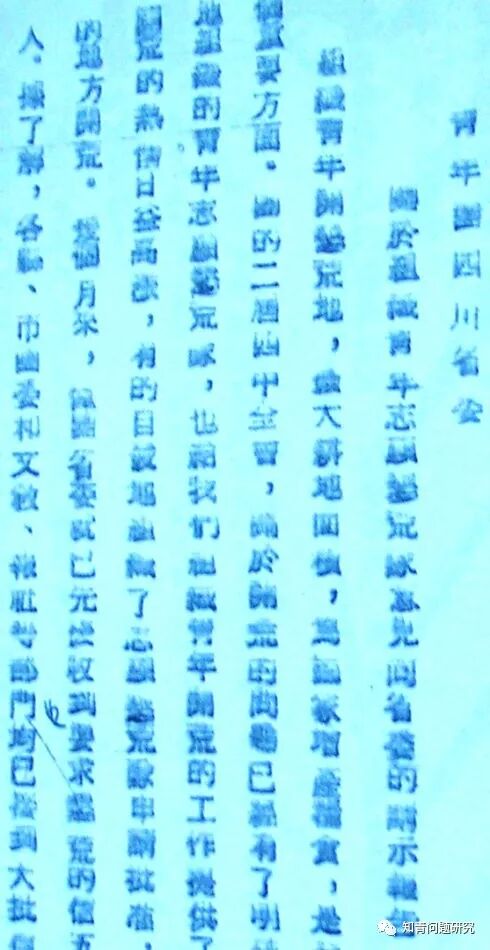 青年團四川省委
關於組織青年志願墾荒隊事先向省委的請示報
組織青年開墾荒地，擴大耕地面積，為國家增產糧食，是
重要方面。團的二屆四中全會，關於開荒的問題已經有了明
地組織的青年志願墾荒隊，也給我們組織青年開荒的工作提供了
開荒的熱情日益高漲，有的自發地組織了志願墾荒隊申請批准，
的地方開荒。幾個月來，僅團省委就已先後收到要求墾荒的信五
人。據了解，各縣、市團委和文教、報社等部門均已接到大批
知青问题研究